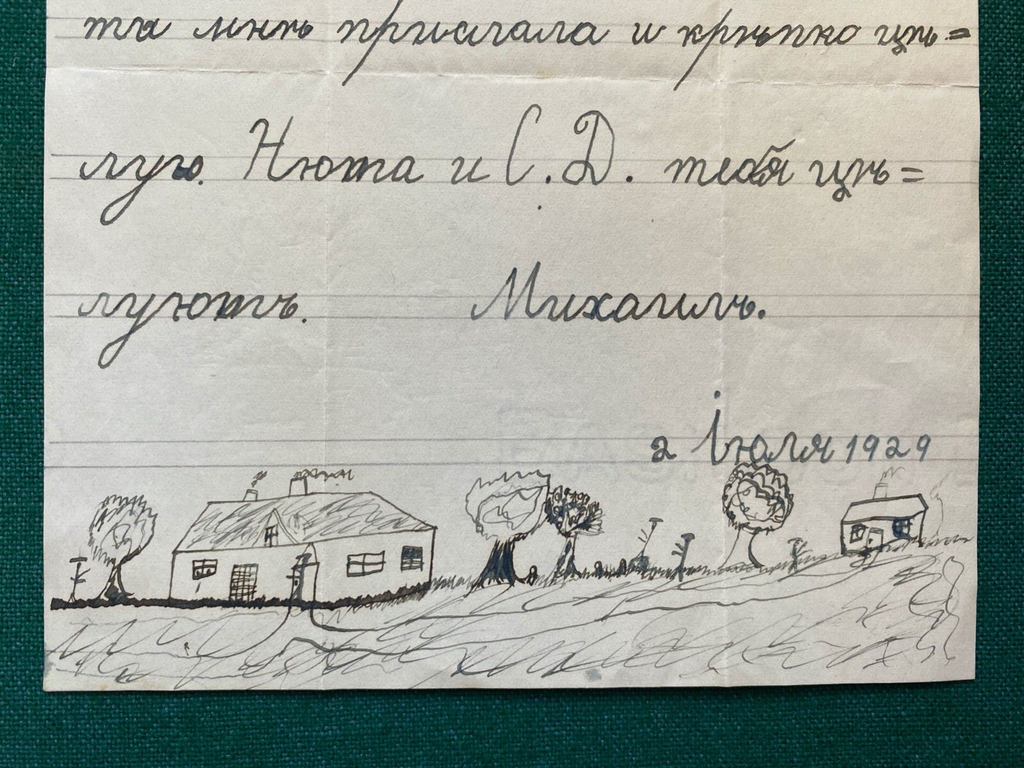 та мнѣ присылала и крѣпко цѣ=
лую. Нюта и С. Д. тебя цѣ=
луютъ. Михаилъ.
2 Іюля 1929